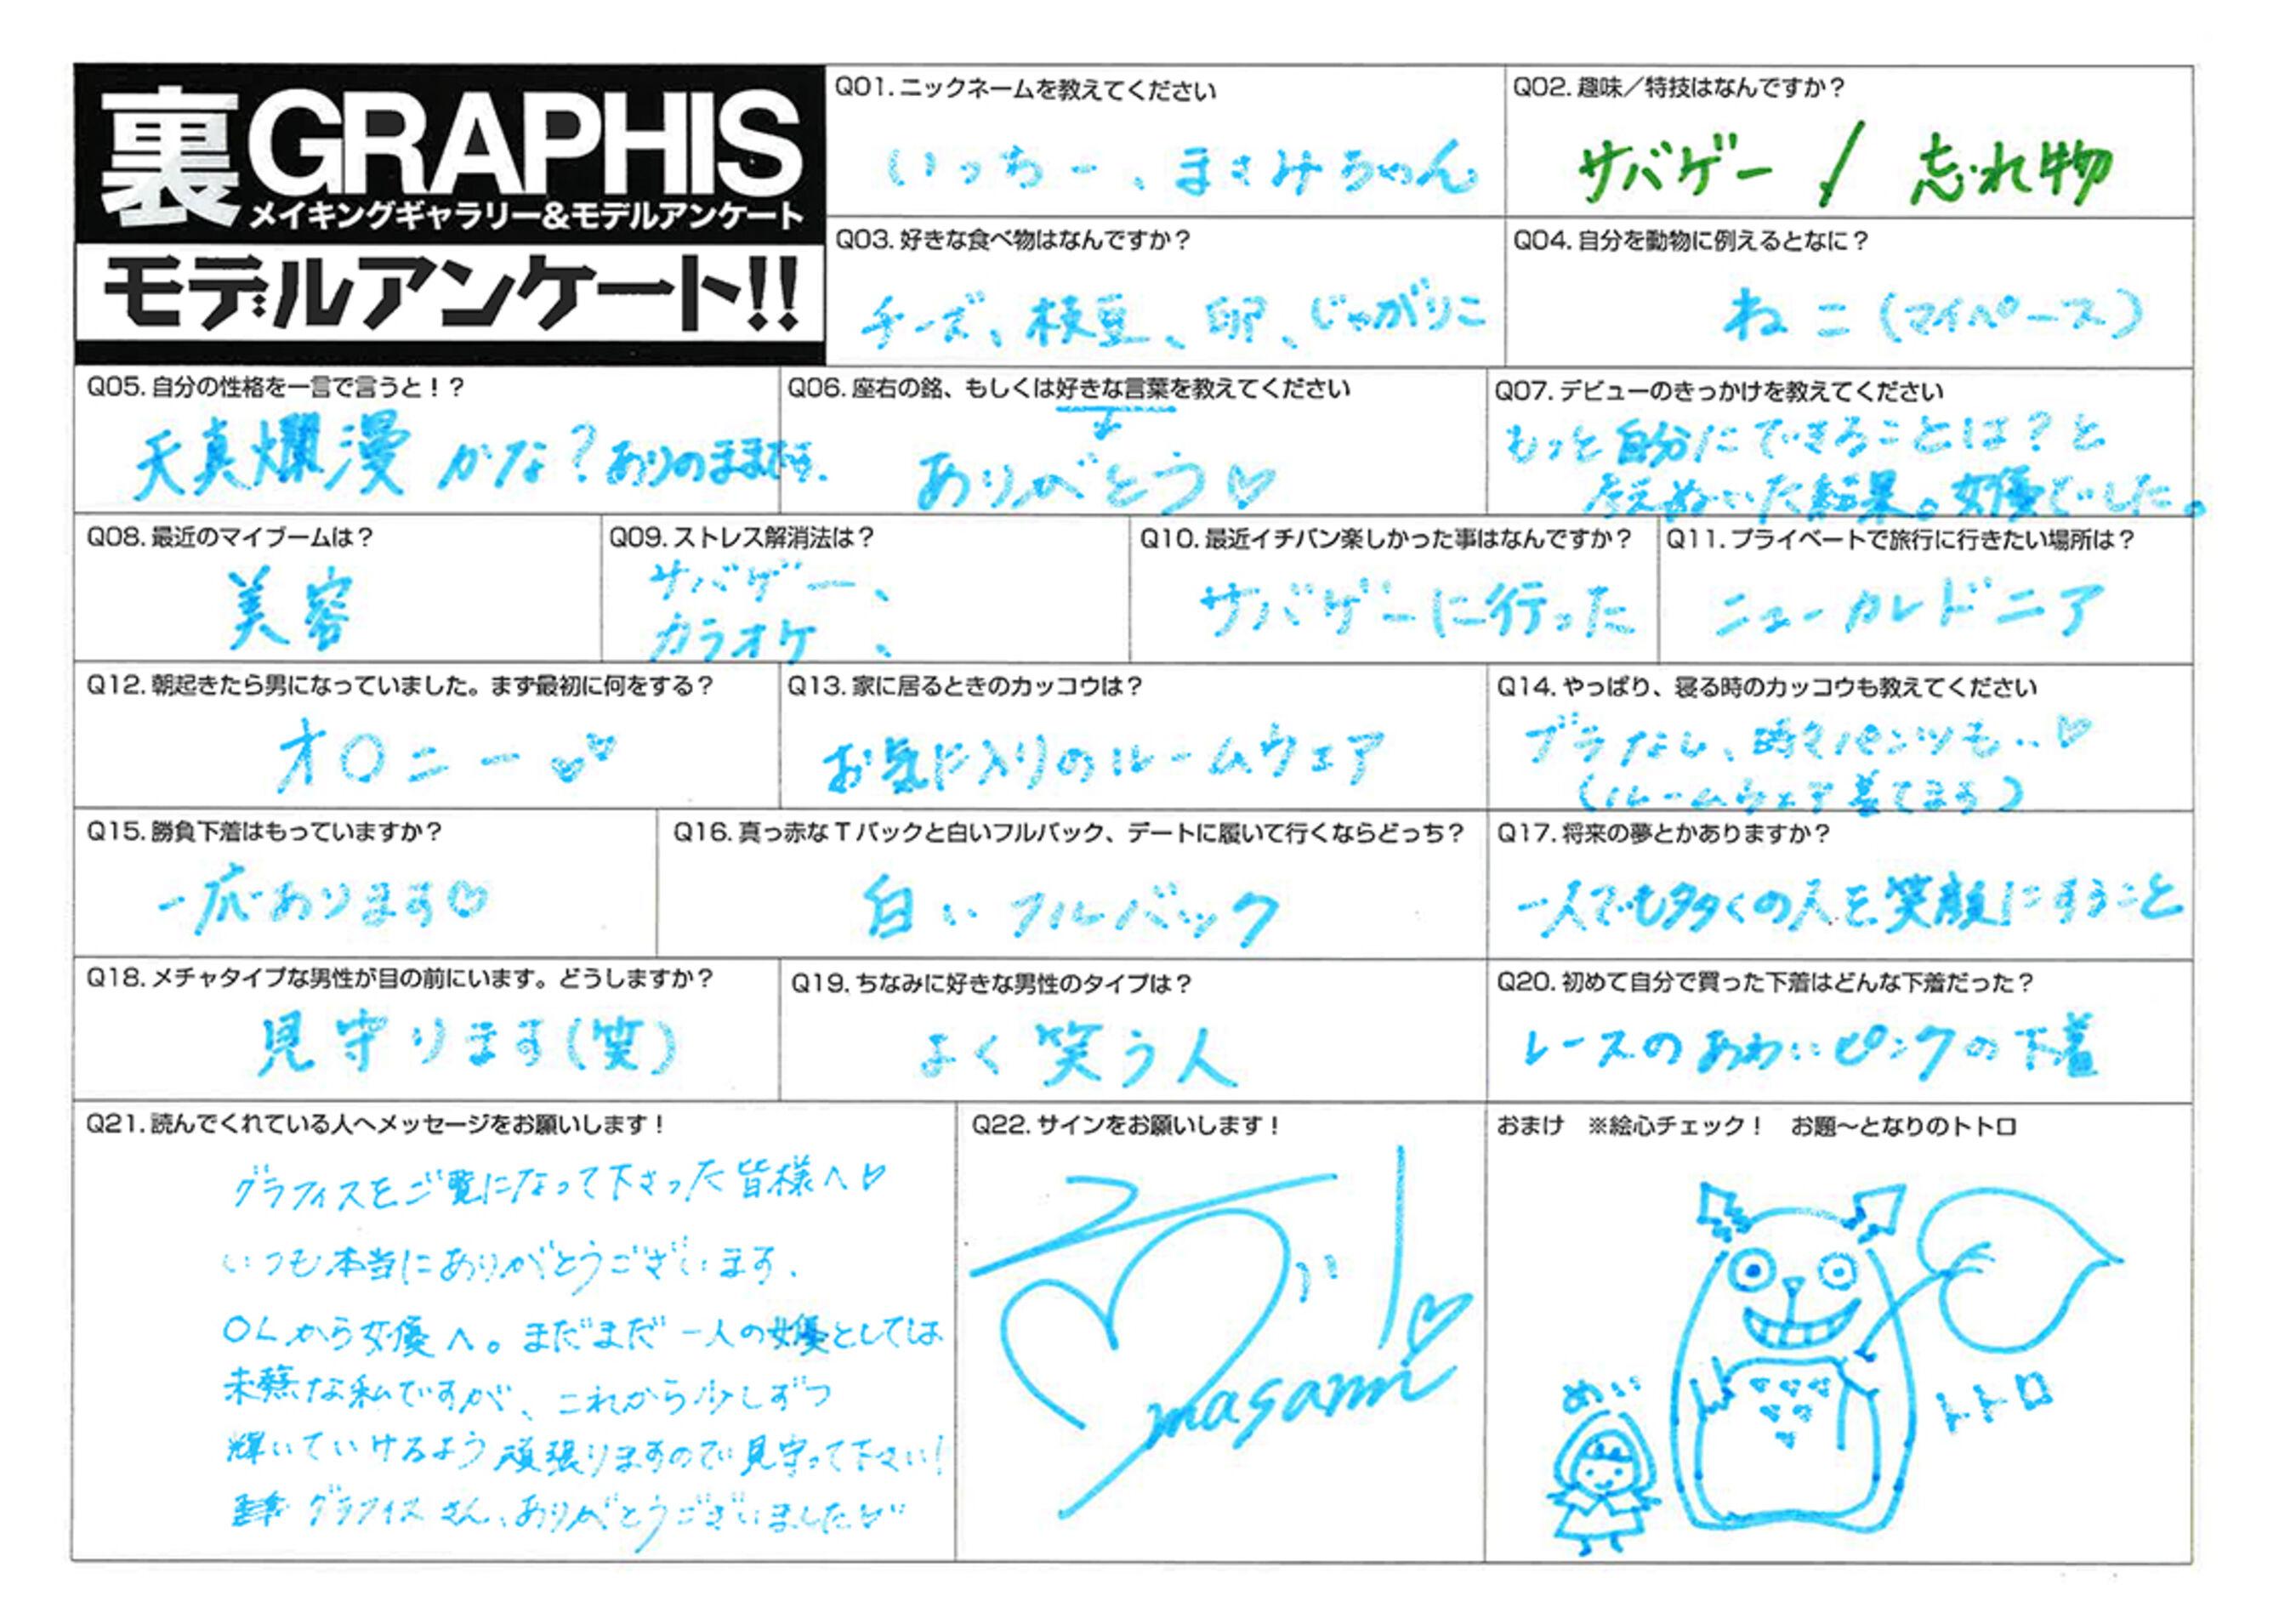 裏GRAPHIS
メイキングギャラリー&モデルアンケート
モデルアンケート!!
Q01.ニックネームを教えてください
いっちー、まさみちゃん
Q02.趣味／特技はなんですか？
サバゲー / 忘れ物
Q03.好きな食べ物はなんですか？
チーズ、枝豆、卵、じゃがりこ
Q04.自分を動物に例えるとなに？
ねこ(マイペース)
Q05.自分の性格を一言で言うと！？
天真爛漫かな？ありのままです.
Q06.座右の銘、もしくは好きな言葉を教えてください
ありがとう♡
Q07.デビューのきっかけを教えてください
もっと自分にできることは？と
考えぬいた結果。女優でした。
Q08.最近のマイブームは？
美容
Q09.ストレス解消法は？
サバゲー、
カラオケ、
Q10.最近イチバン楽しかった事はなんですか？
サバゲーに行った
Q11.プライベートで旅行に行きたい場所は？
ニューカレドニア
Q12.朝起きたら男になっていました。まず最初に何をする？
オ〇ニー♡♡
Q13.家に居るときのカッコウは？
お気に入りのルームウェア
Q14.やっぱり、寝る時のカッコウも教えてください
ブラなし、時々パンツも..♡
(ルームウェア着てます)
Q15.勝負下着はもっていますか？
一応あります♡
Q16.真っ赤なTバックと白いフルバック、デートに履いて行くならどっち？
白いフルバック
Q17.将来の夢とかありますか？
一人でも多くの人を笑顔にすること
Q18.メチャタイプな男性が目の前にいます。どうしますか？
見守ります(笑)
Q19.ちなみに好きな男性のタイプは？
よく笑う人
Q20.初めて自分で買った下着はどんな下着だった？
レースのあわいピンクの下着
Q21.読んでくれている人へメッセージをお願いします！
グラフィスをご覧になって下さった皆様へ♡
いつも本当にありがとうございます.
OLから女優へ。まだまだ一人の女優としては
未熟な私ですが、これから少しずつ
輝いていけるよう頑張りますので見守って下さい!
グラフィスさん、ありがとうございました♡
Q22.サインをお願いします！
masami
おまけ ※絵心チェック！ お題〜となりのトトロ
めい
トトロ